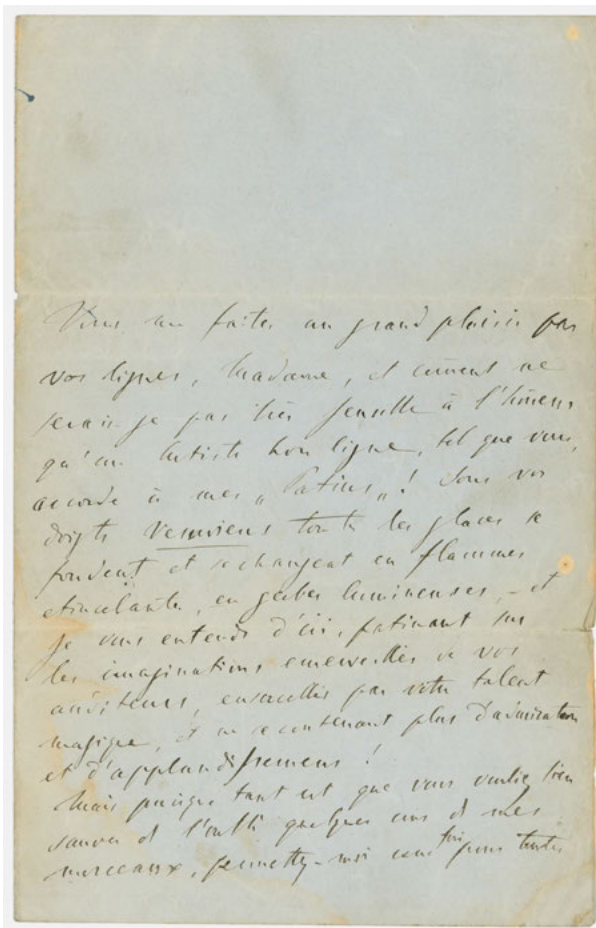 Vous me faites un grand plaisir par
vos lignes, Madame, et comment ne
serais-je pas très sensible à l'honneur
qu'un Artiste hors ligne, tel que vous,
accorde à mes „Patins„! Sous vos
doigts vesuviens toutes les glaces se
fondent et se changent en flammes
etincelantes, en gerbes lumineuses, – et
je vous entends d'ici, patinant sur
les imaginations emerveillées de vos
auditeurs, ensorcellés par votre talent
magique, et ne se contenant plus d'admiration
et d'applaudissemens!
Mais puisque tant est que vous vouliez bien
sauver de l'oubli quelques uns de mes
morceaux, permettez-moi une fois pour toutes